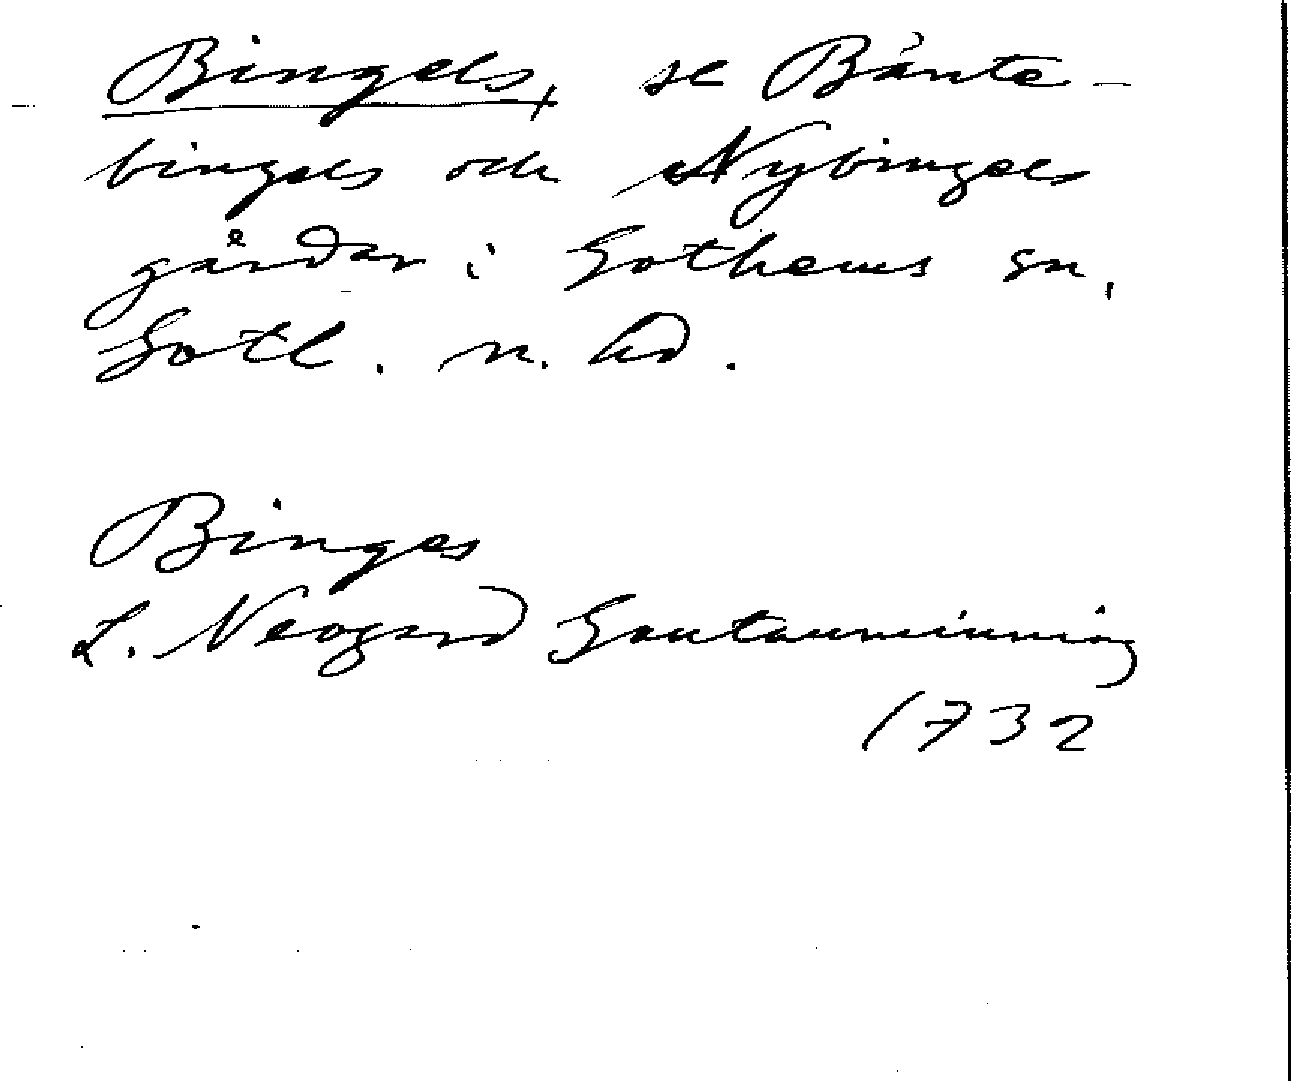 Bingels, se Bånte-
bingels och Nybingels
gårdar i Gothems sn,
Gotl. n. hd.
Binges
L. Neogard Gautauminning
1732